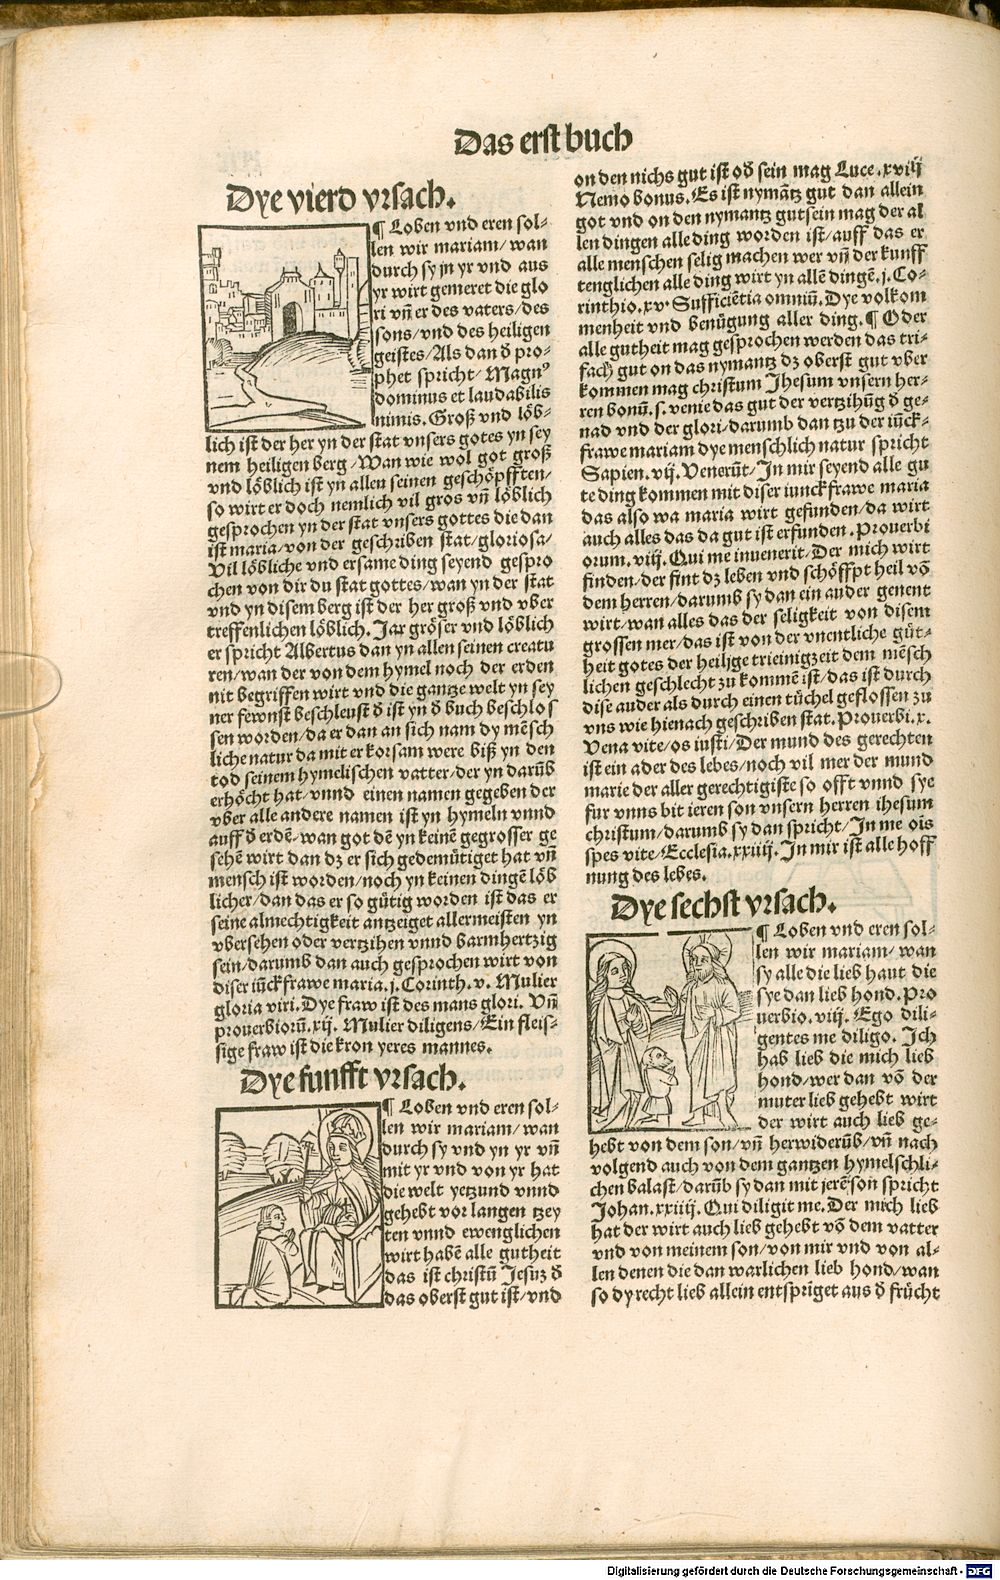 Das erst buch
Dye vierd vrsach.
¶ Loben vnd eren sol⸗
len wir mariam/ wan
durch sy jn yr vnd aus
yr wirt gemeret die glo
ri vñ er des vaters/des
sons/vnd des heiligen
geistes/Als dan d̕ pro⸗
phet spricht/ Magnꝰ
dominus et laudabilis
nimis. Groß vnd löb⸗
lich ist der her yn der stat vnsers gotes yn sey
nem heiligen berg/Wan wie wol got groß
vnd löblich ist yn allen seinen geschöpfften/
so wirt er doch nemlich vil gros vñ löblich
gesprochen yn der stat vnsers gottes die dan
ist maria/von der geschriben stat/gloriosa/
Vil löbliche vnd ersame ding seyend gespro
chen von dir du stat gottes/wan yn der stat
vnd yn disem berg ist der her groß vnd vber
treffenlichen löblich. Jax gröser vnd löblich
er spricht Albertus dan yn allen seinen creatu
ren/wan der von dem hymel noch der erden
nit begriffen wirt vnd die gantze welt yn sey
ner fewnst beschleust d̕ ist yn d̕ buch beschlos
sen worden/da er dan an sich nam dy mēsch
liche natur da mit er korsam were biß yn den
tod seinem hymelischen vatter/der yn darūb
erhöcht hat/vnnd einen namen gegeben der
vber alle andere namen ist yn hymeln vnnd
auff d̕ erdē/wan got dē yn keinē gegrosser ge
sehē wirt dan dz er sich gedemütiget hat vñ
mensch ist worden/noch yn keinen dingē löb
licher/dan das er so gütig worden ist das er
seine almechtigkeit antzeiget allermeisten yn
vbersehen oder vertzihen vnnd barmhertzig
sein/darumb dan auch gesprochen wirt von
diser iūckfrawe maria.j. Corinth. v. Mulier
gloria viri. Dye fraw ist des mans glori. Vñ
prouerbiorū.xij. Mulier diligens/Ein fleis⸗
sige fraw ist die kron yeres mannes.
Dye funfft vrsach.
¶ Loben vnd eren sol⸗
len wir mariam/ wan
durch sy vnd yn yr vñ
mit yr vnd von yr hat
die welt yetzund vnnd
gehebt vor langen tzey
ten vnnd ewenglichen
wirt habē alle gutheit
das ist christū Jesuz d̕
das oberst gut ist/vnd
on den nichs gut ist od̕ sein mag Luce.xviij
Nemo bonus. Es ist nymātz gut dan allein
got vnd on den nymantz gutsein mag der al
len dingen alle ding worden ist/auff das er
alle menschen selig machen wer vñ der kunff
tenglichen alle ding wirt yn allē dingē.j. Co⸗
rinthio.xv Sufficiētia omniū. Dye volkom
menheit vnd benügung aller ding. ¶ Oder
alle gutheit mag gesprochen werden das tri⸗
fach gut on das nymantz dz oberst gut vber
kommen mag christum Jhesum vnsern her⸗
ren bonū. s. venie das gut der vertzihūg d̕ ge⸗
nad vnd der glori/darumb dan tzu der iūck⸗
frawe mariam dye menschlich natur spricht
Sapien. vij. Venerūt/In mir seyend alle gu
te ding kommen mit diser iunckfrawe maria
das also wa maria wirt gefunden/da wirt
auch alles das da gut ist erfunden. Prouerbi
orum. viij. Qui me inuenerit/Der mich wirt
finden/der fint dz leben vnd schöffpt heil vō
dem herren/darumb sy dan ein auder genent
wirt/wan alles das der seligkeit von disem
grossen mer/das ist von der vnentliche güt⸗
heit gotes der heilige trieinigzeit dem mēsch
lichen geschlecht zu kommē ist/das ist durch
dise auder als durch einen tüchel geflossen zu
vns wie hienach geschriben stat. Prouerbi. x.
Vena vite/os iusti/Der mund des gerechten
ist ein ader des lebes/noch vil mer der mund
marie der aller gerechtigiste so offt vnnd sye
fur vnns bit ieren son vnsern herren ihesum
christum/darumb sy dan spricht/In me ois
spes vite/Ecclesia.xxiiij. In mir ist alle hoff
nung des lebes.
Dye sechst vrsach.
¶ Loben vnd eren sol⸗
len wir mariam/ wan
sy alle die lieb haut die
sye dan lieb hond. Pro
uerbio. viij. Ego dili⸗
gentes me diligo. Ich
hab lieb die mich lieb
hond/wer dan vō der
muter lieb gehebt wirt
der wirt auch lieb ge⸗
hebt von dem son/vñ herwiderūb/vñ nach
volgend auch von dem gantzen hymelschli⸗
chen balast/darūb sy dan mit jerē son spricht
Johan. xxiiij. Qui diligit me. Der mich lieb
hat der wirt auch lieb gehebt vō dem vatter
vnd von meinem son/von mir vnd von al⸗
len denen die dan warlichen lieb hond/wan
so dy recht lieb allein entspriget aus d̕ frücht
Digitalisierung gefördert durch die Deutsche Forschungsgemeinschaft - DFG